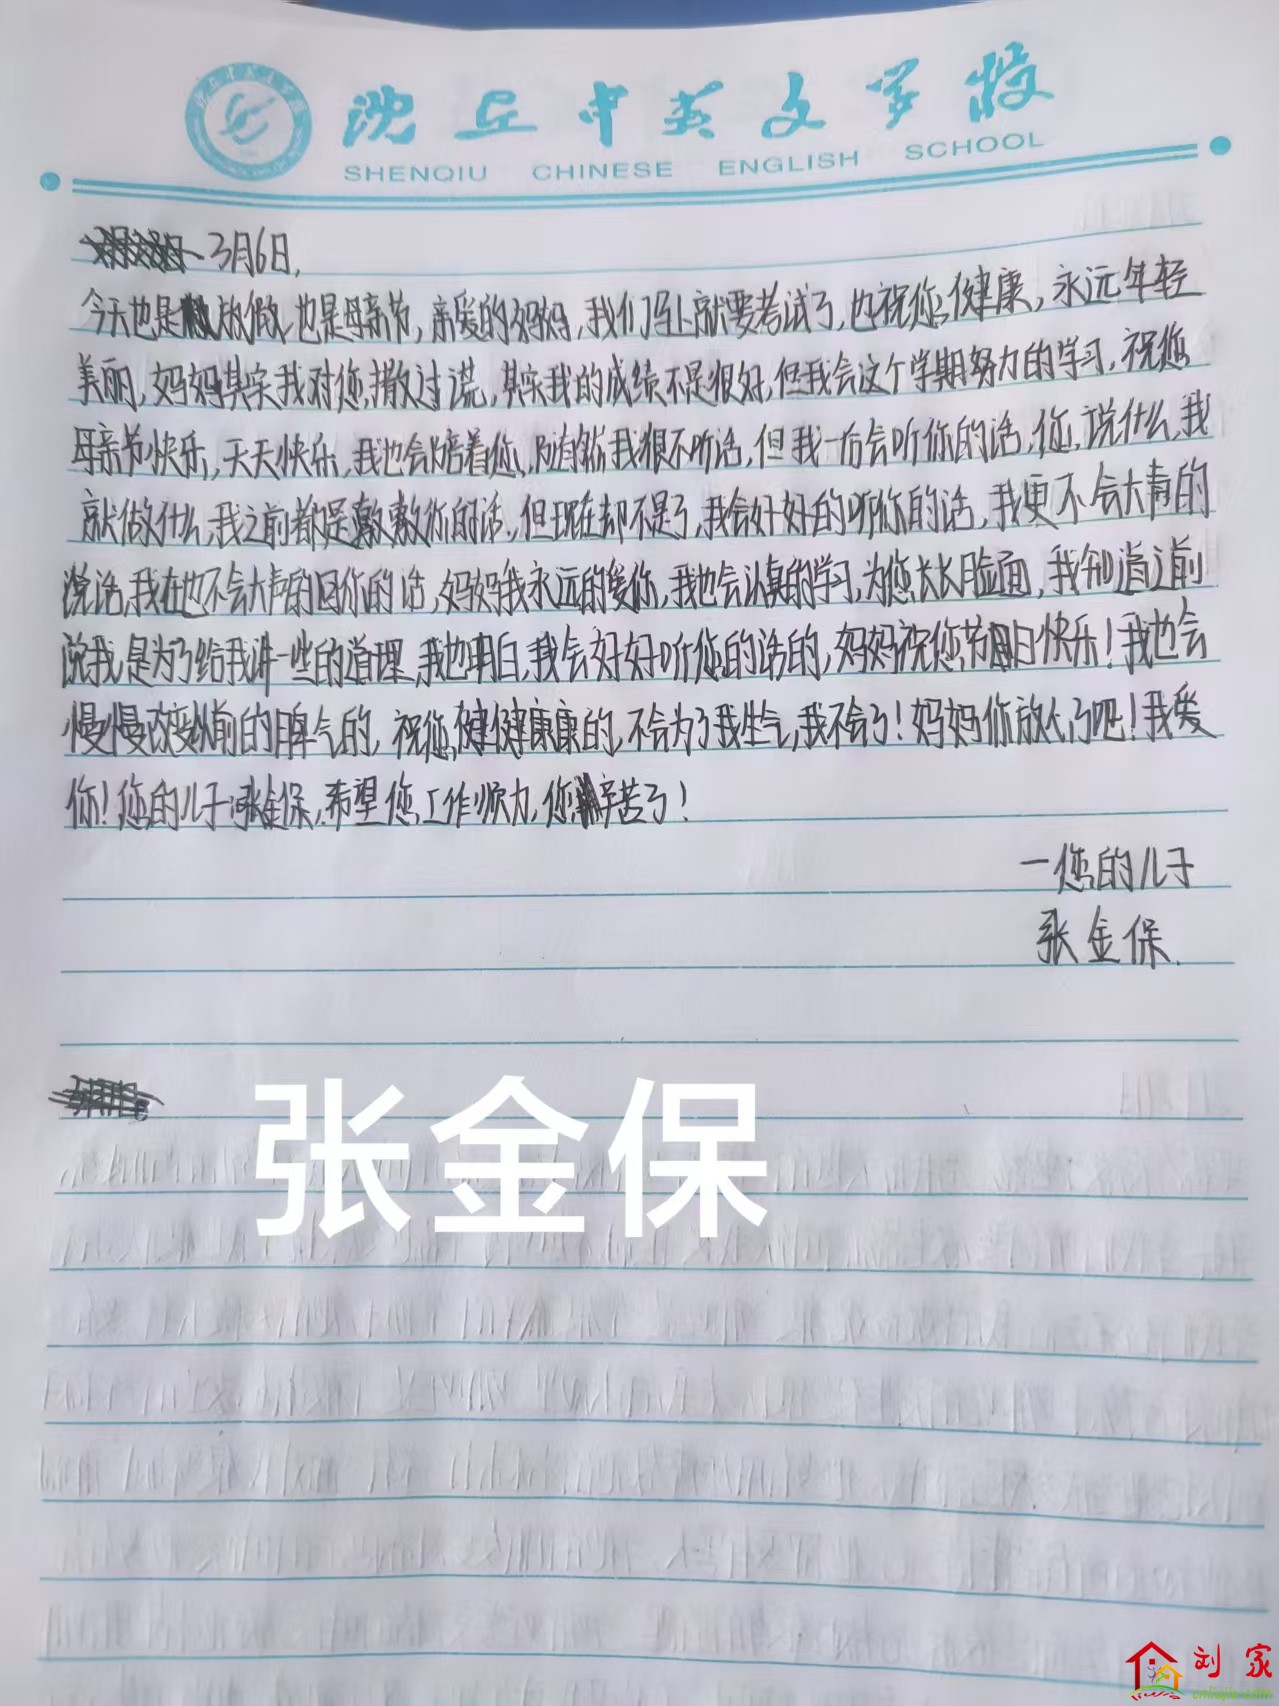 沈丘中英文学校
SHENQIU CHINESE ENGLISH SCHOOL
3月6日,
今天也是放假,也是母亲节,亲爱的妈妈,我们马上就要考试了,也祝您健康,永远年轻
美丽,妈妈其实我对您撒过谎,其实我的成绩不是很好,但我会这个学期努力的学习,祝您
母亲节快乐,天天快乐,我也会陪着您,虽然我很不听话,但我一后会听你的话,您说什么,我
就做什么,我之前都是敷敷你的话,但现在却不是了,我会好好的听你的话,我更不会大青的
说话,我在也不会大声的回你的话,妈妈我永远的爱你,我也会认真的学习,为您长长脸面,我知道之前
说我是为了给我讲一些的道理,我也明白,我会好好听您的话的,妈妈祝您节日快乐!我也会
慢慢改变以前的脾气的,祝您健健康康的,不会为了我生气,我不会了!妈妈你放心了吧!我爱
你!您的儿子:张金保,希望您工作顺力,您辛苦了!
一您的儿子
张金保.
张金保
刘家
cnliujia.com